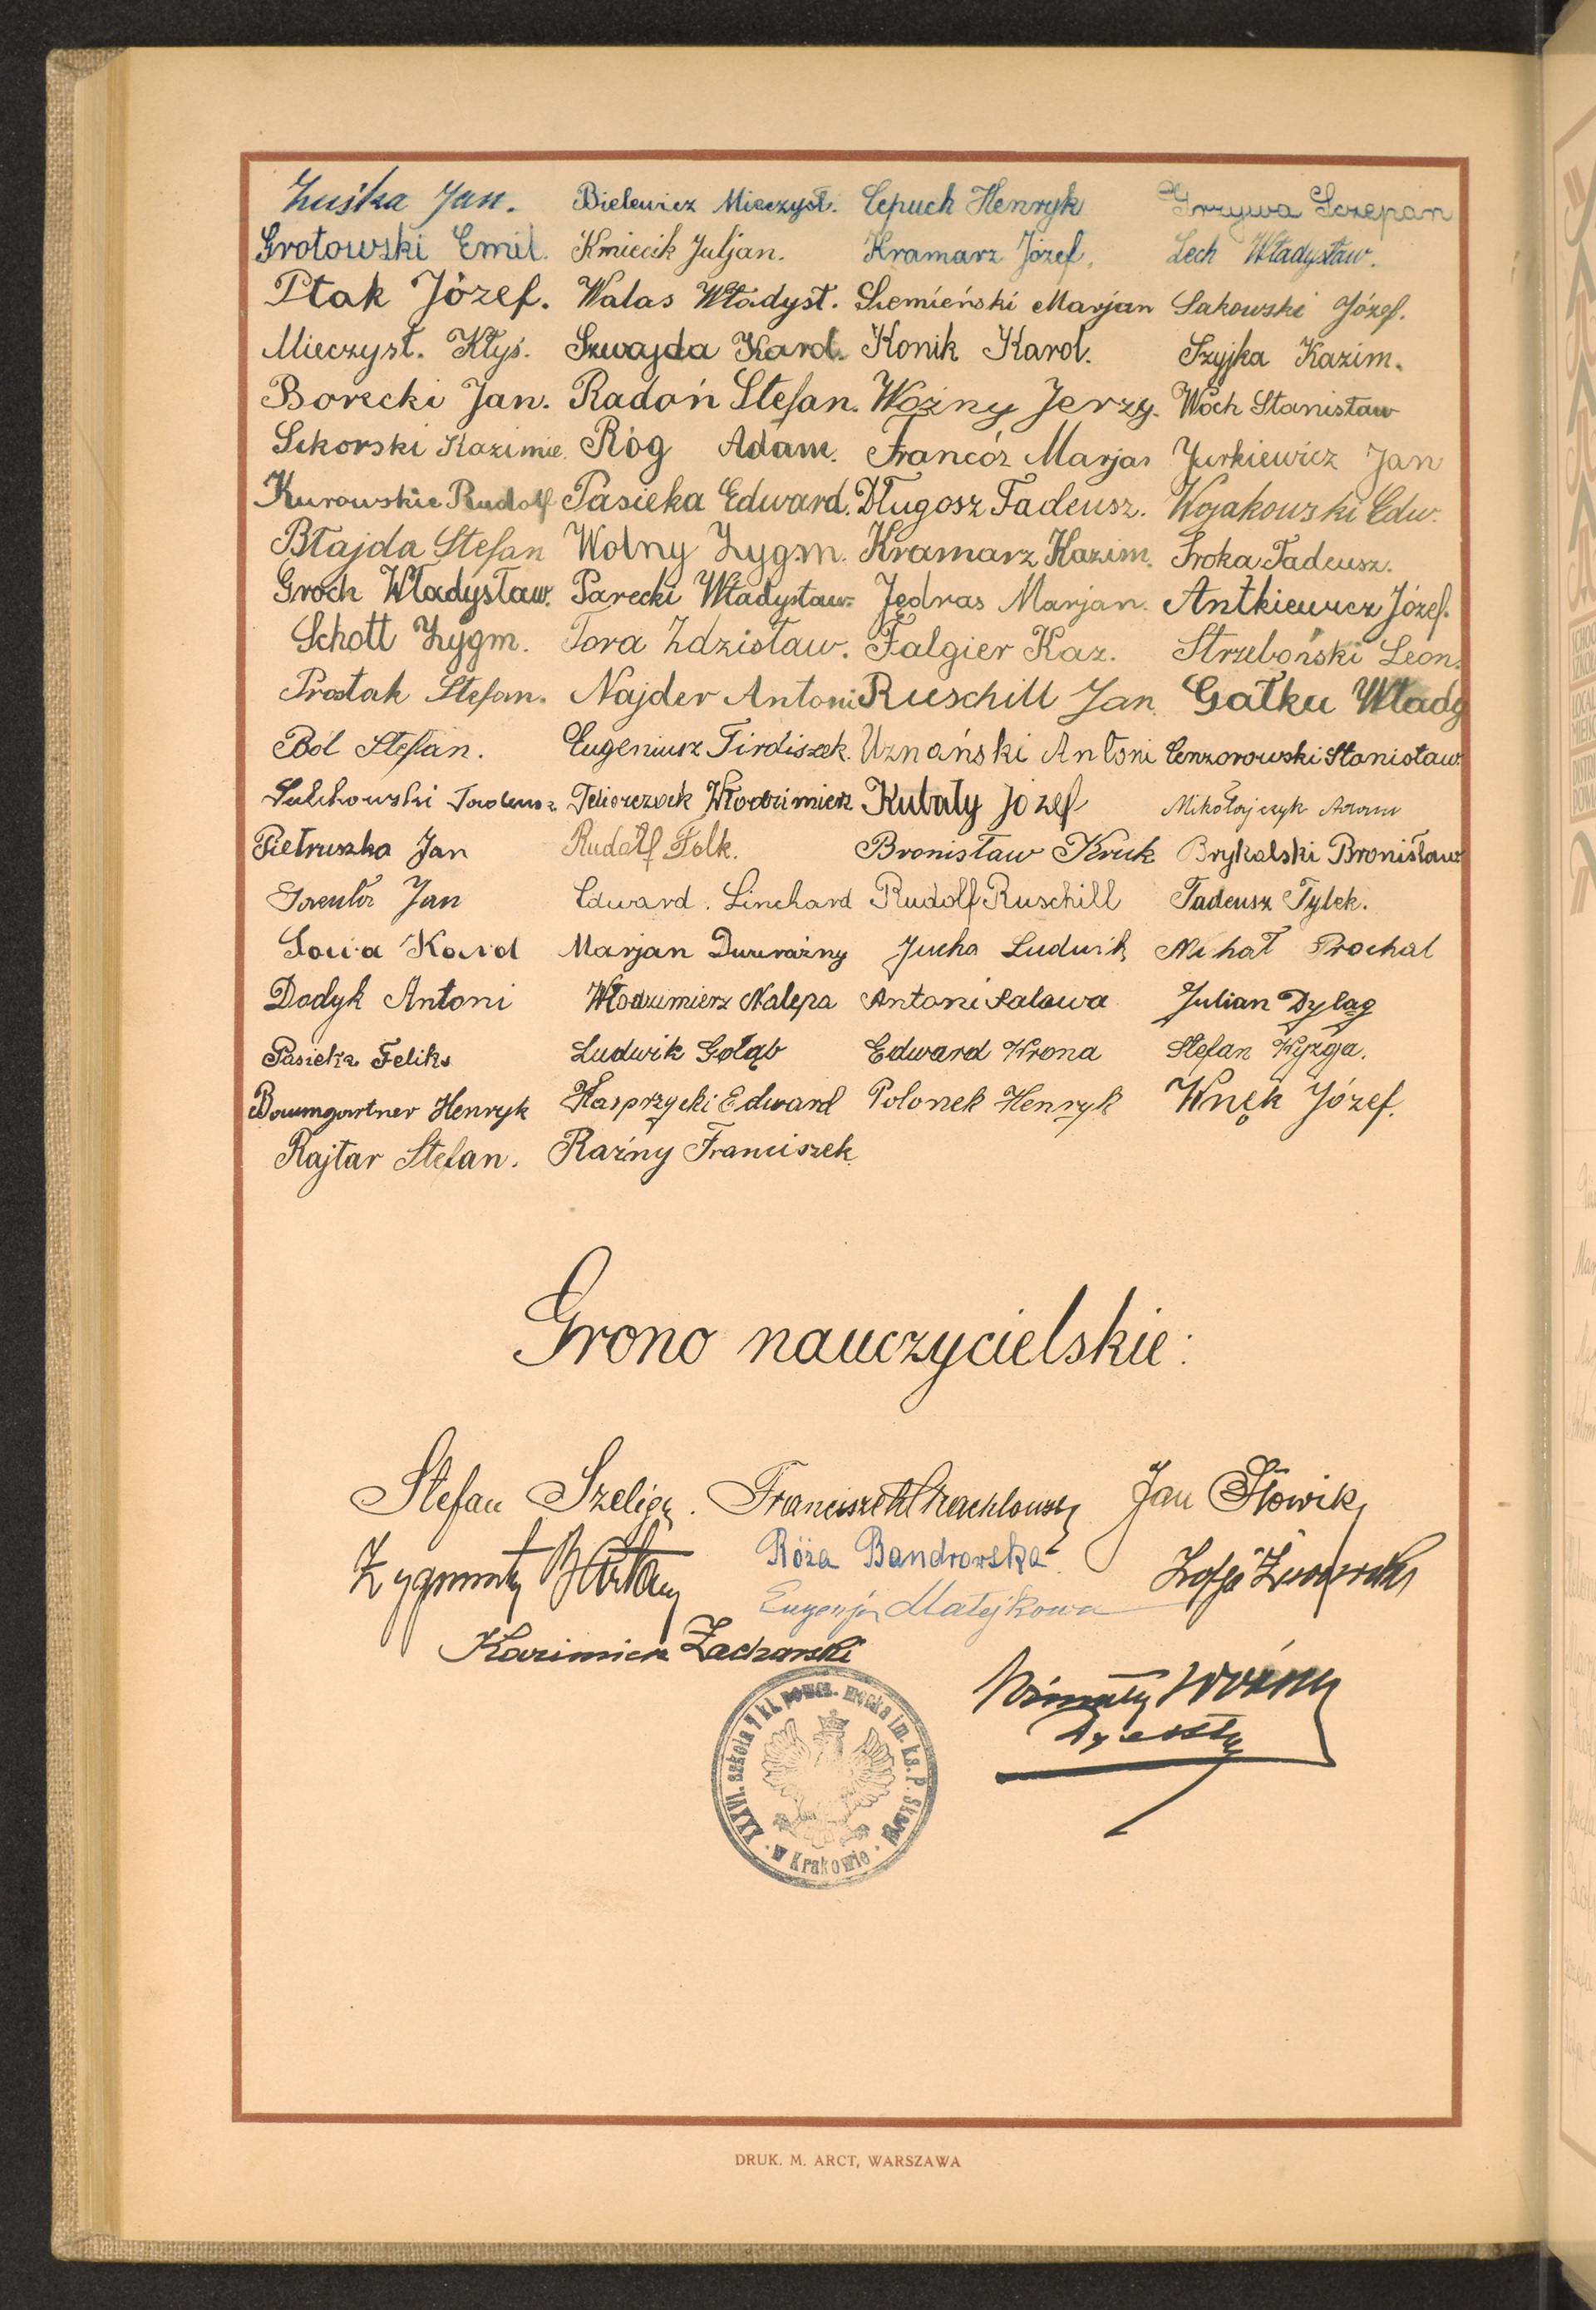 Zuśka Jan. Bielewicz Mieczysł. Cepuch Henryk Grzywa Sczepan
Grotowski Emil. Kmiecik Juljan. Kramarz Józef. Lech Władysław.
Ptak Józef. Walas Władysł. Siemieński Marjan Sakowski Józef.
Mieczysł. Kłyś. Szwajda Karol. Konik Karol. Szyjka Kazim.
Borecki Jan. Radoń Stefan. Woźny Jerzy. Woch Stanisław
Sikorski Kazimie. Róg Adam. Francóz Marjan Jurkiewicz Jan
Kurowskie Rudolf Pasieka Edward. Długosz Tadeusz. Wojakowski Edw.
Błajda Stefan Wolny Zygm. Kramarz Kazim. Sroka Tadeusz.
Groch Władysław. Parecki Władysław Jędras Marjan. Antkiewicz Józef.
Schott Zygm. Tora Zdzisław. Falgier Kaz. Strzeboński Leon.
Prostak Stefan. Najder Antoni Ruschill Jan. Gałku Wład
Ból Stefan. Eugeniusz Tirdiszek. Uznański Antoni Cenzorowski Stanisław.
Sulikowski Tadeusz Włodzimierz Kubaty Józef Mikołajczyk Adam
Pietruszka Jan Rudolf Folk. Bronisław Kruk Brykalski Bronisław
Jan Edward. Linchard Rudolf Ruschill Tadeusz Tylek.
Karol Marjan Jucha Ludwik Michał Prochal
Dodyk Antoni Włodzimierz Nalepa Antoni Salawa Julian Dyląg
Pasieka Feliks Ludwik Gołąb Edward Wrona Stefan Wyzga.
Baumgartner Henryk Kasprzycki Edward Polonek Henryk Wnęk Józef.
Rajtar Stefan. Raźny Franciszek.
Grono nauczycielskie:
Stefan Szeliga. Franciszek Jan Słowik
Zygmunt Róża Bandrowska Zofja
Eugenja Matejkowa
Kazimierz Zacharski
Woźny
XXXVI. szkoła 7 kl. powsz. męska im. ks. P. Skargi
w Krakowie
DRUK. M. ARCT, WARSZAWA